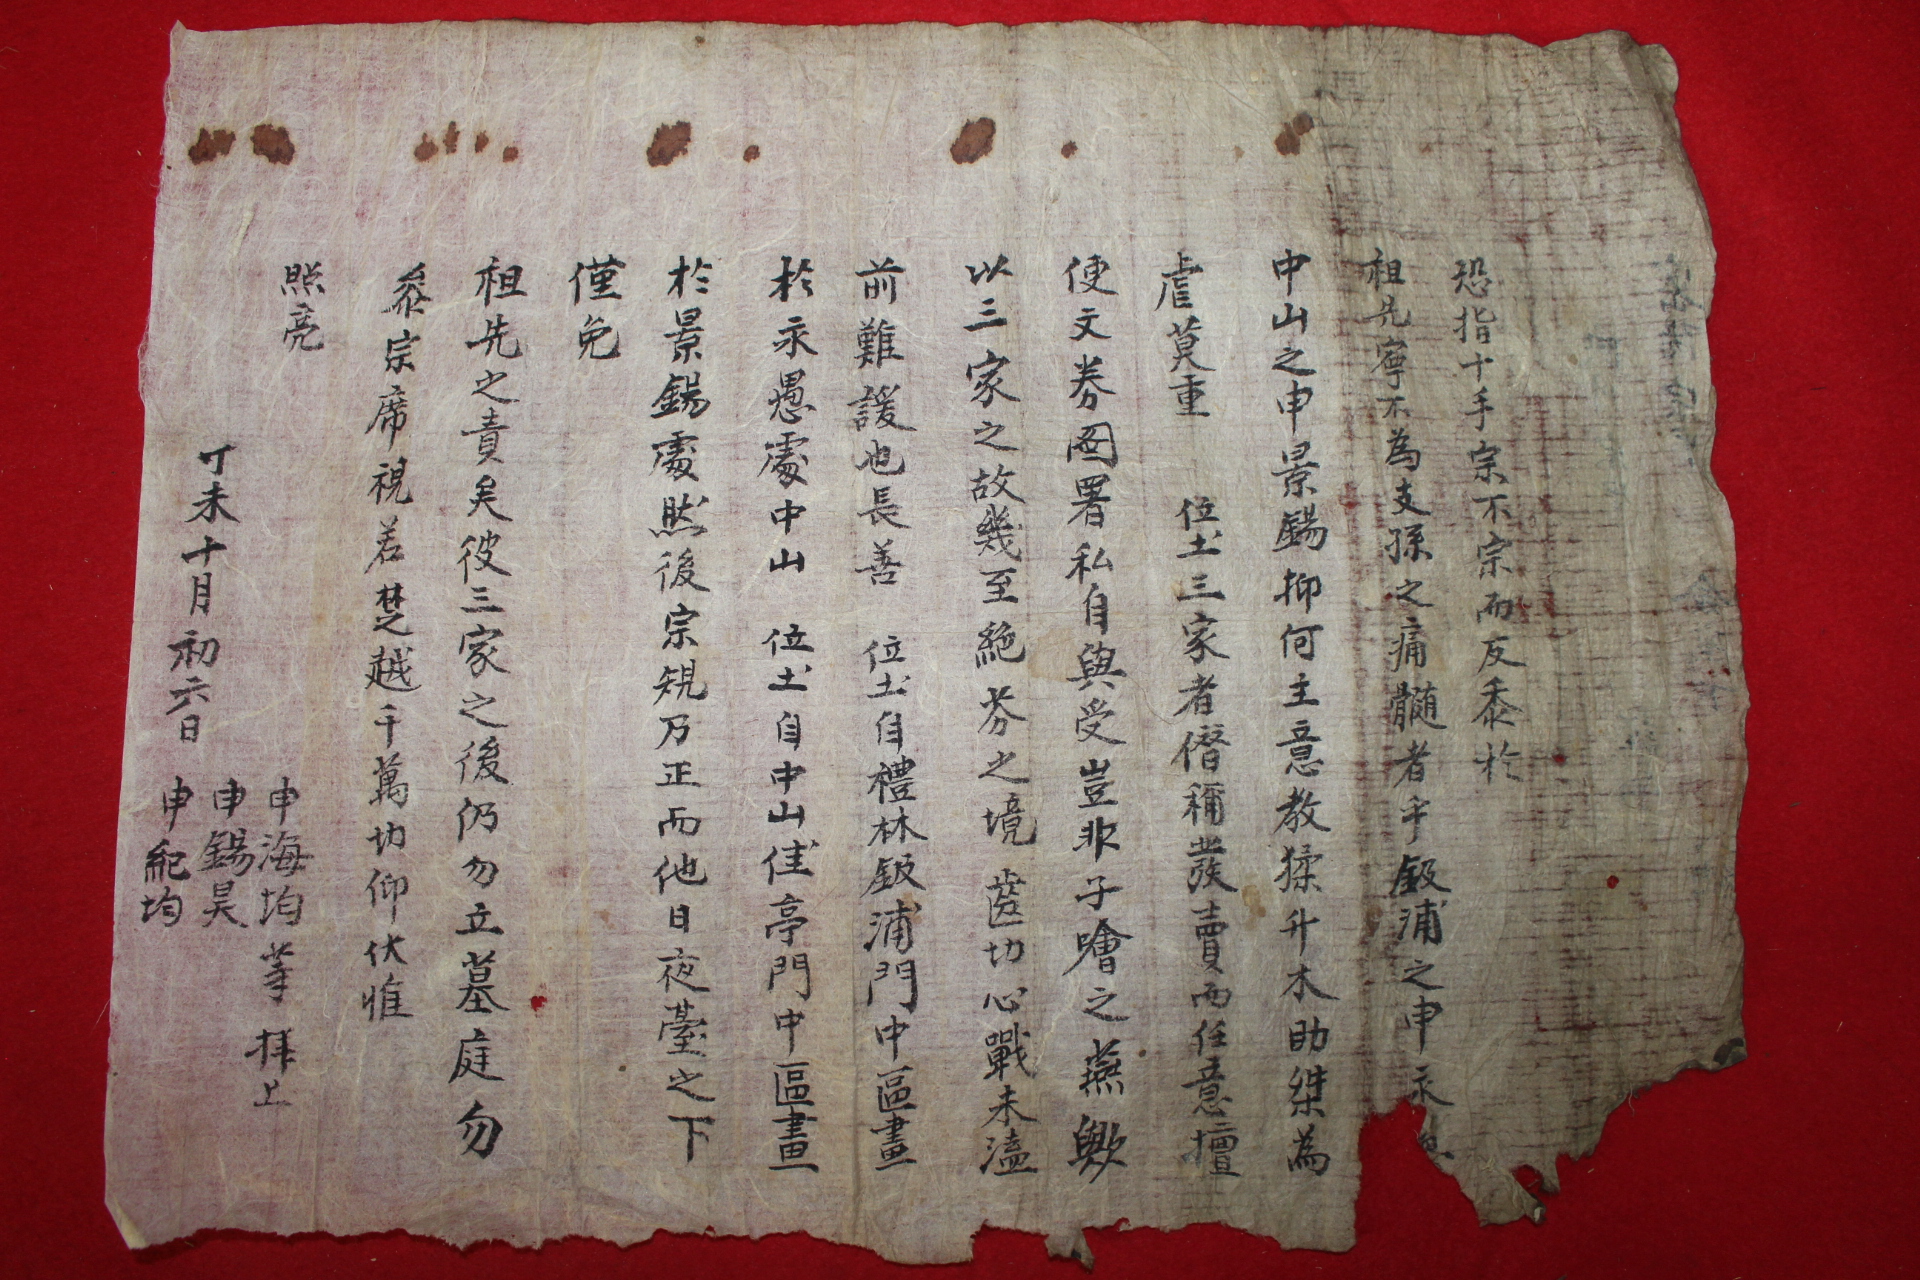 恐指十手宗不宗而反忝於
祖先寧不為支孫之痛髓者乎鈑浦之申永
中山之申景錫抑何主意教猱升木助桀為
虐莫重　位土三家者僭稱發賣而任意擅
便文券圖署私自與受豈非子噲之燕歟
以三家之故幾至絶芬之境齒切心戰未溘
前難諼也長善　位土自禮林鈑浦門中區畫
於永愚處中山　位土自中山佳亭門中區畫
於景錫處然後宗規乃正而他日夜臺之下
僅免
祖先之責矣彼三家之後仍勿立墓庭勿
叅宗席視若楚越千萬切仰伏惟
照亮
丁未十月初六日
申海均 等 拜上
申錫昊
申紀均